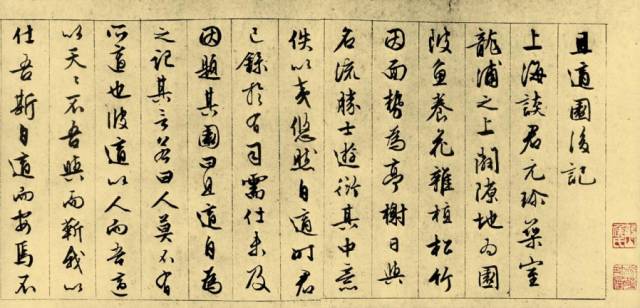 且適園後記
上海談君元珍築室
龍浦之上闢隙地為園
陂魚養花雜植松竹
因而勢為亭榭日與
名流勝士遊衍其中意
佚以夷悠然自適時君
已錄於有司需仕未及
因題其園曰且適自為
之記其言若曰人莫不有
所適也彼適以人而吾適
以天〻不吾與而靳我以
仕吾斯自適而安焉不